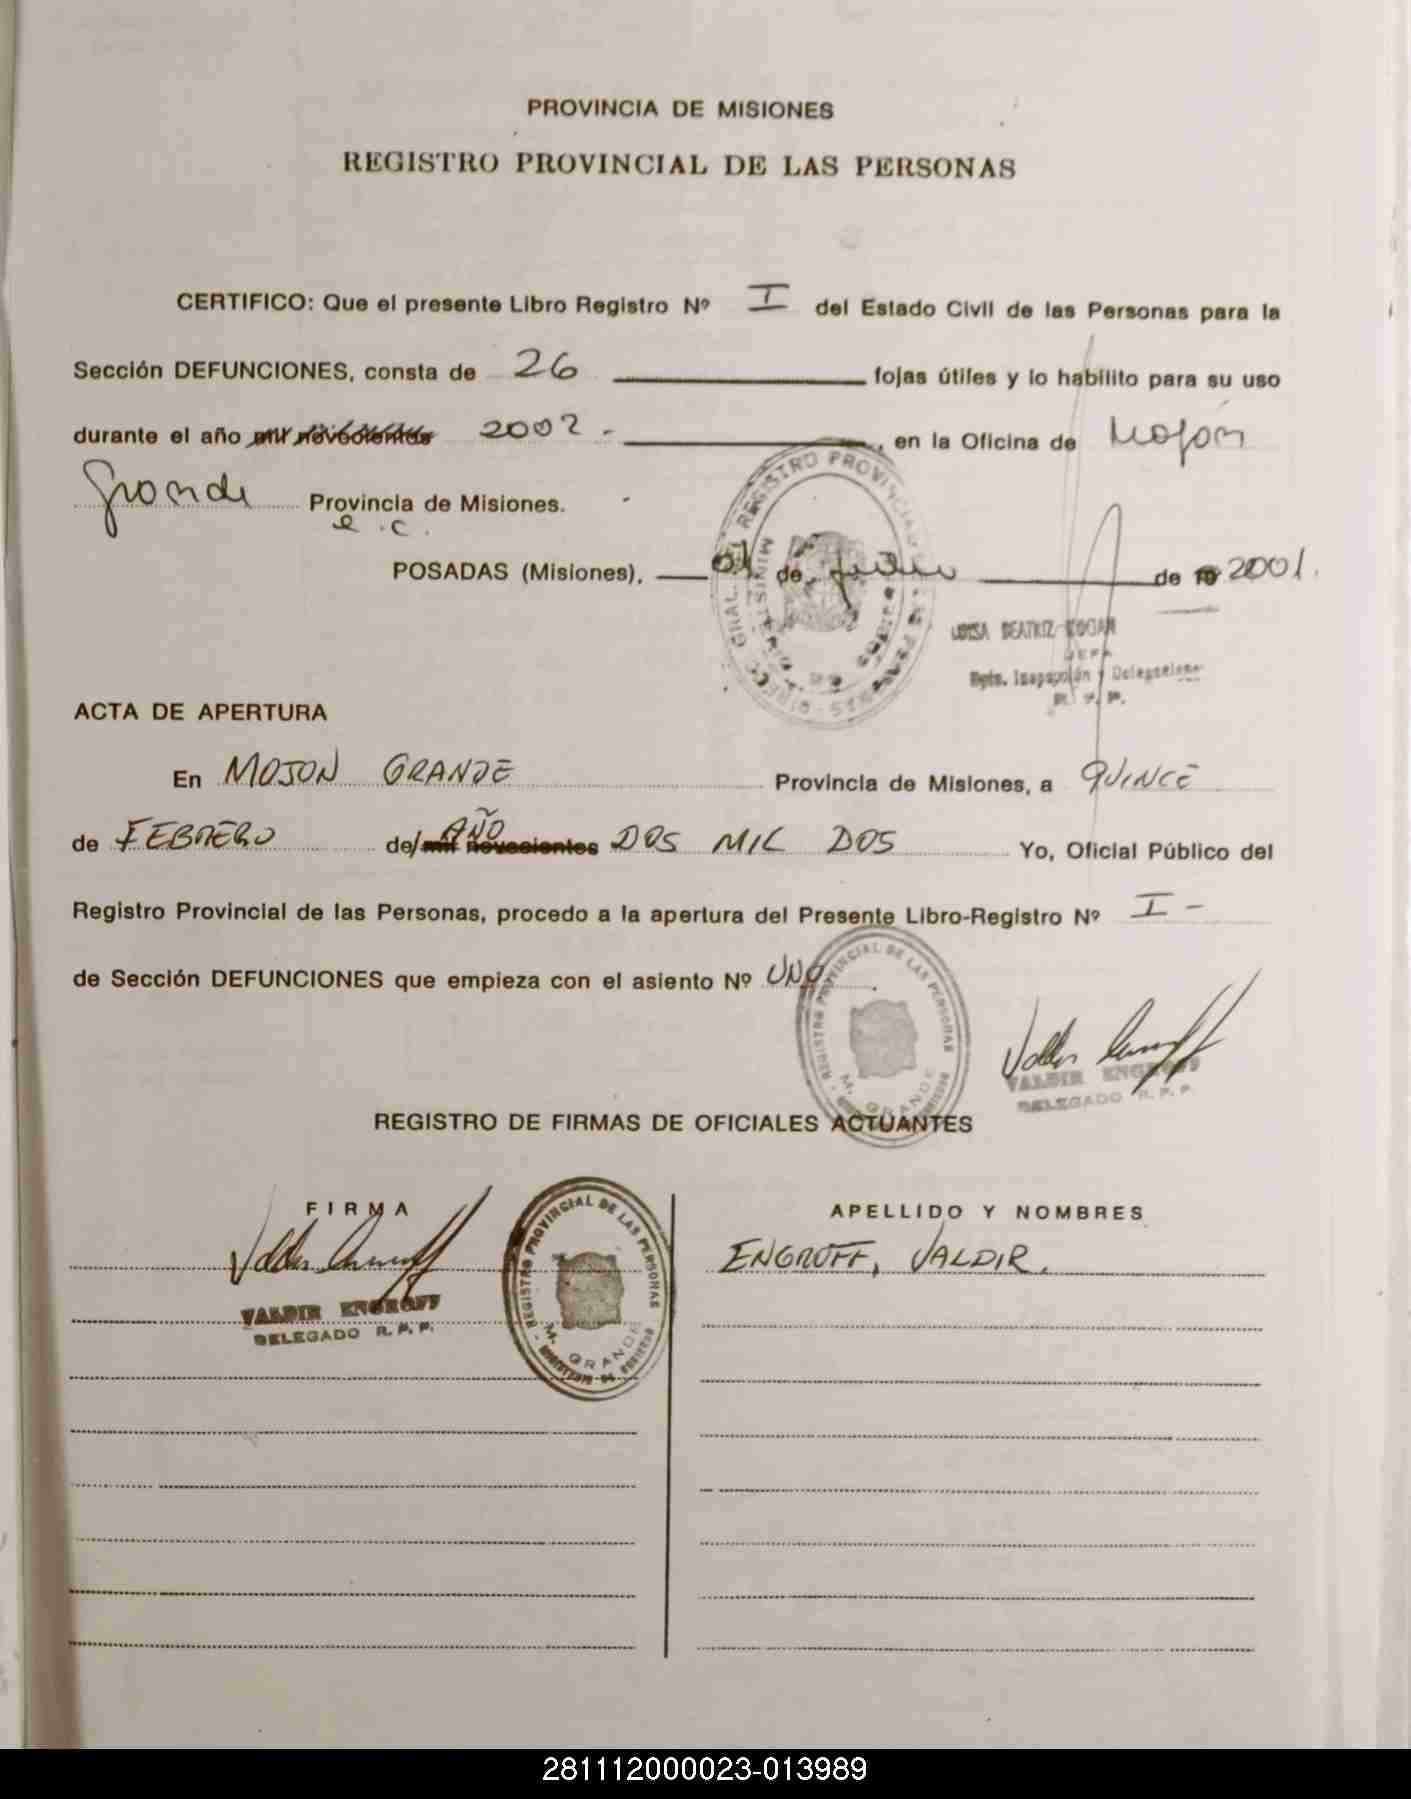 PROVINCIA DE MISIONES
REGISTRO PROVINCIAL DE LAS PERSONAS
CERTIFICO: Que el presente Libro Registro Nº I del Estado Civil de las Personas para la
Sección DEFUNCIONES, consta de 26 fojas útiles y lo habilito para su uso
durante el año mil novecientos 2002 - , en la Oficina de Mojón
Grande Provincia de Misiones.
e.c.
POSADAS (Misiones), 01 de de 19 2001.
REGISTRO PROVINCIAL
LUISA BEATRIZ
JEFA
Dpto. Inspección y Delegaciones
R. P. P.
ACTA DE APERTURA
En MOJON GRANDE Provincia de Misiones, a QUINCE
de FEBRERO del mil novecientos AÑO DOS MIL DOS Yo, Oficial Público del
Registro Provincial de las Personas, procedo a la apertura del Presente Libro-Registro Nº I -
de Sección DEFUNCIONES que empieza con el asiento Nº UNO.
REGISTRO PROVINCIAL DE LAS PERSONAS
M. GRANDE
VALDIR ENGROFF
DELEGADO R. P. P.
REGISTRO DE FIRMAS DE OFICIALES ACTUANTES
FIRMA APELLIDO Y NOMBRES
ENGROFF, VALDIR.
VALDIR ENGROFF
DELEGADO R. P. P.
REGISTRO PROVINCIAL DE LAS PERSONAS
M. GRANDE
281112000023-013989